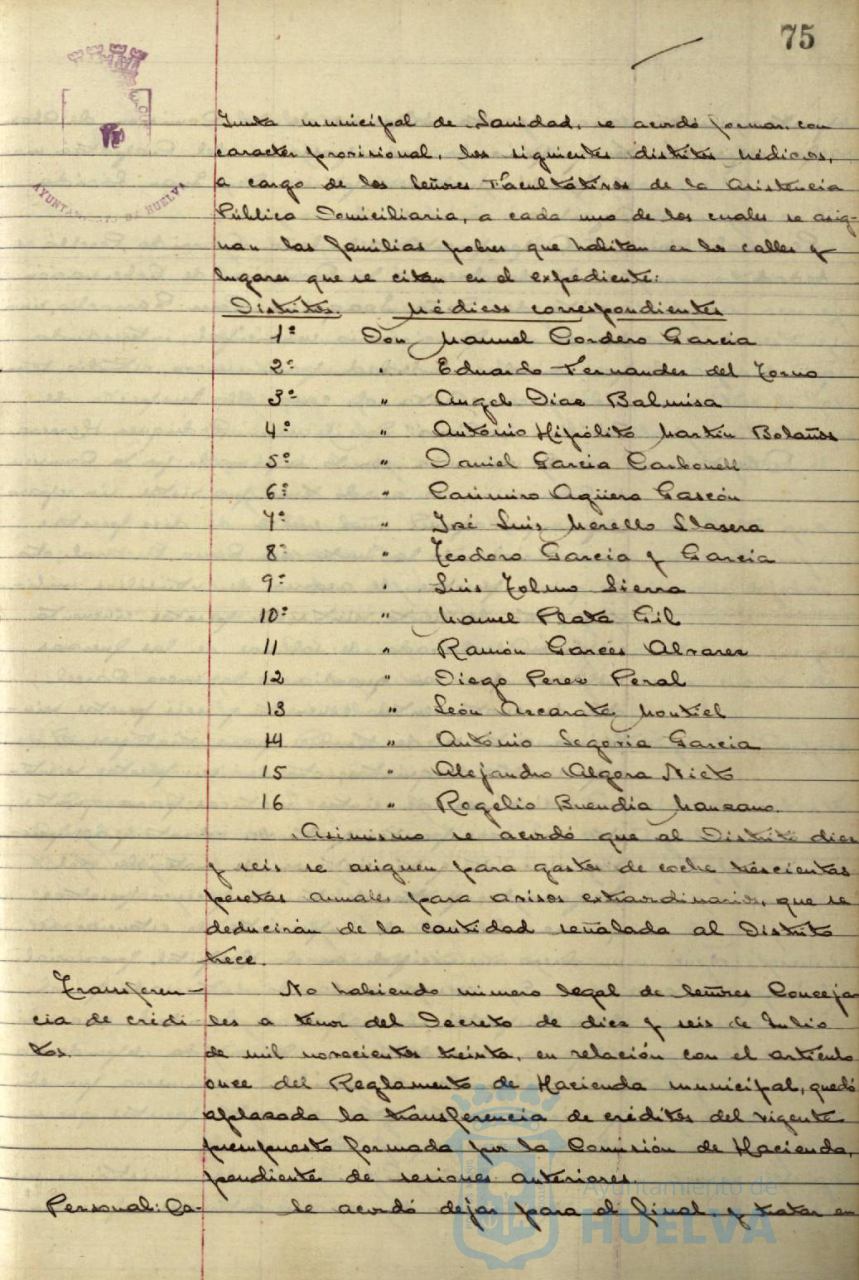 75
AYUNTAMIENTO DE HUELVA
Junta municipal de Sanidad, se acordó formar, con
caracter provisional, los siguientes distritos médicos,
a cargo de los Señores Facultativos de la Asistencia
Pública Domiciliaria, a cada uno de los cuales se asig-
nan las familias pobres que habitan en las calles y
lugares que se citan en el expediente:
Distritos. Médicos correspondientes
1º Don Manuel Cordero García
2º " Eduardo Fernandez del Torno
3º " Angel Diaz Balmisa
4º " António Hipólito Martín Bolaños
5º " Daniel García Carbonell
6º " Casimiro Agüera Gascón
7º " José Luis Morello Llasera
8º " Teodoro García y García
9º " Luis Tolmo Sierra
10º " Manuel Plata Gil
11 " Ramón Garcés Alvarez
12 " Diego Perez Peral
13 " León Azcarate Montiel
14 " António Segovia García
15 " Alejandro Algora Nieto
16 " Rogelio Buendía Manzano.
Asimismo se acordó que al Distrito diez
y seis se asignen para gastos de coche trescientas
pesetas anuales para avisos extraordinarios, que se
deducirán de la cantidad señalada al Distrito
trece.
Transferen-
cia de crédi
tos.
No habiendo número legal de Señores Conceja
les a tenor del Decreto de diez y seis de Julio
de mil novecientos treinta, en relación con el artículo
once del Reglamento de Hacienda municipal, quedó
aplazada la transferencia de créditos del vigente
presupuesto formada por la Comisión de Hacienda,
pendiente de sesiones anteriores.
Personal: Ca-
Se acordó dejar para el final, y tratar en
Ayuntamiento de
HUELVA